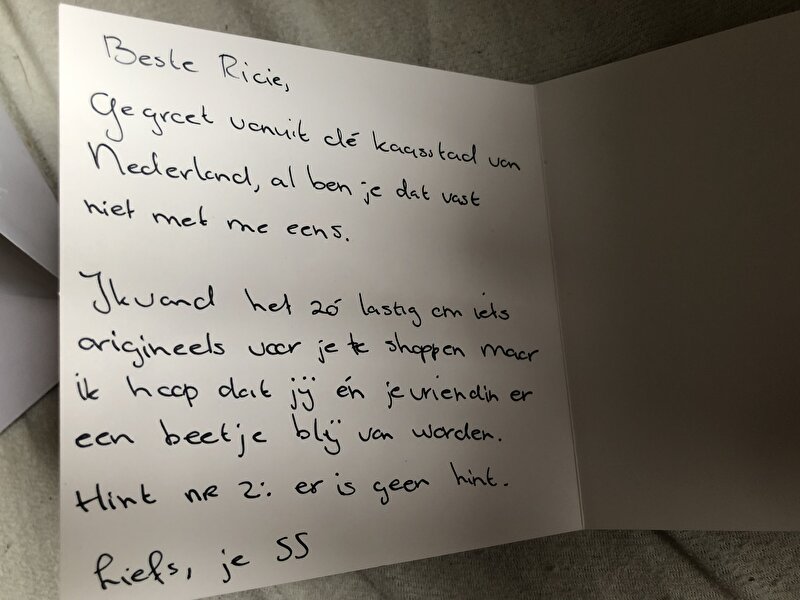 Beste Ricie,
Gegroet vanuit dé kaasstad van
Nederland, al ben je dat vast
niet met me eens.
Ik vond het zó lastig om iets
origineels voor je te shoppen maar
ik hoop dat jij én je vriendin er
een beetje blij van worden.
Hint nr 2: er is geen hint.
Liefs, je SS